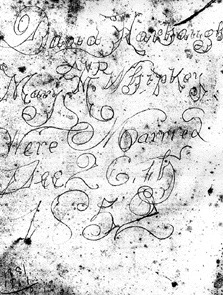 David Harbaugh
And
Mary M Whipkey
Were Married
Dec 26th
1852